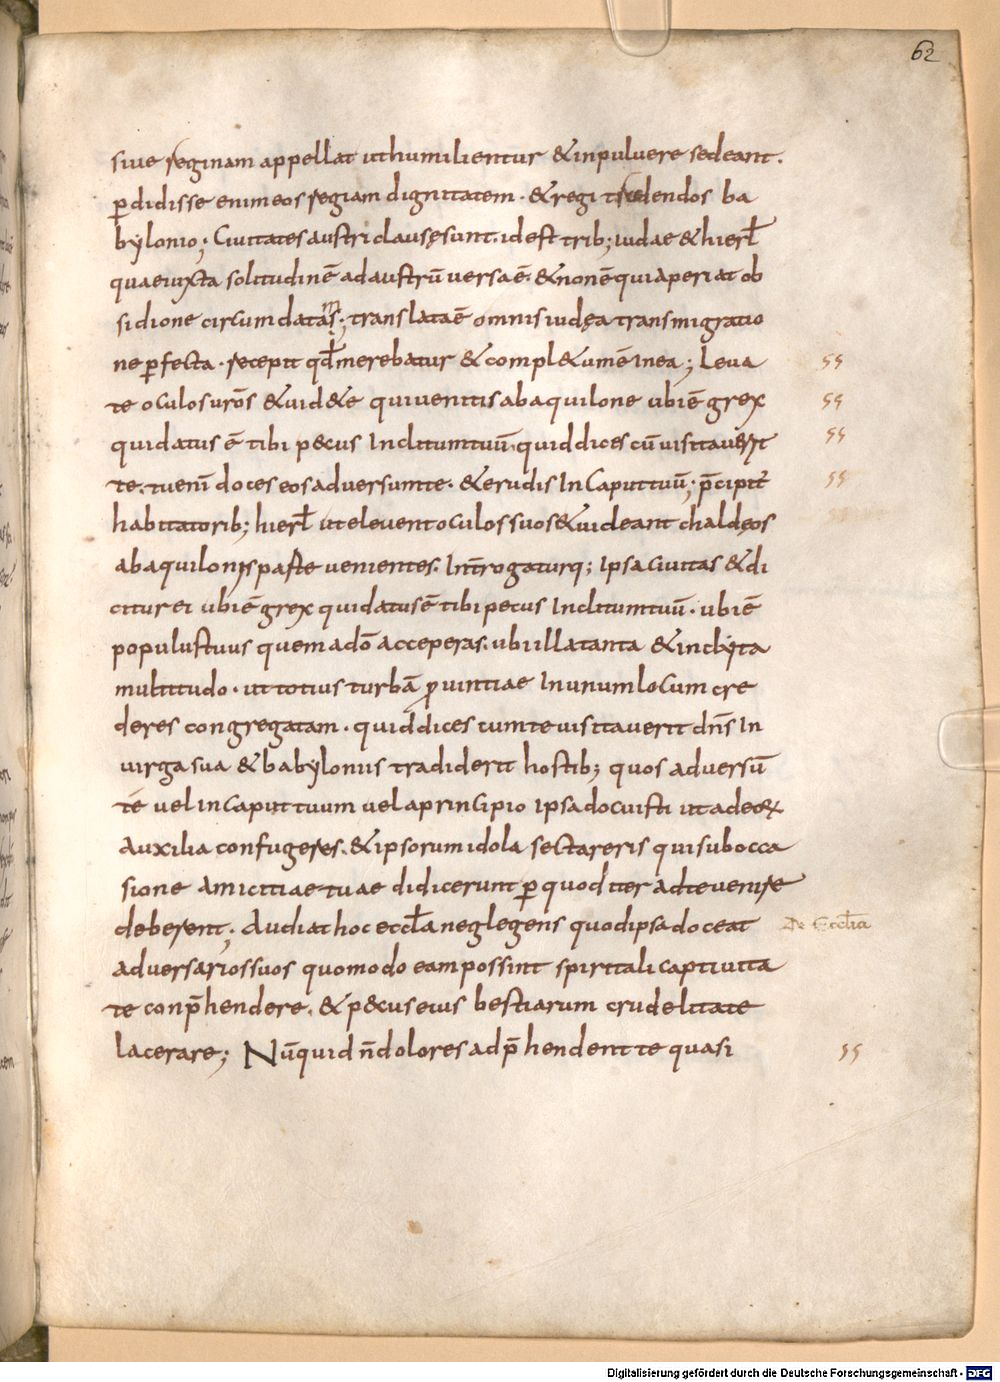 62
siue reginam appellat ut humilientur & in puluere sedeant.
p̄didisse enim eos regiam dignitatem · & regi tradendos ba
bylonio; Ciuitates austri clausę sunt. id est trib; iudae & hierl̄
quae iuxta solitudinē ad austrū uersa ē. & non ē qui aperiat ob
sidione circumdatam; translata ē omnis iudęa transmigratio
ne p̄fecta · recepit qd̄ merebatur & compl&um ē in ea; Leua ss
te oculos urōs & uid&e qui uenitis ab aquilone ubi ē grex ss
qui datus ē tibi pecus inclitum tuū. quid dices cū uisitauerit ss
te. tu enī doces eos aduersum te. & erudis in caput tuū; p̄cipit ss
habitatorib; hierl̄ ut eleuent oculos suos & uideant chaldęos
ab aquilonis parte uenientes. Int̄rogaturq; ipsa ciuitas & di
citur ei ubi ē grex qui datus ē tibi pecus inclitum tuū · ubi ē
populus tuus quemadō acceperas. ubi illa tanta & inclyta
multitudo · ut totius turbā p̄uintiae in unum locum cre
deres congregatam · quid dices cum te uisitauerit dn̄s in
uirga sua & babylonius tradiderit hostib; quos aduersū
te uel in caput tuum uel a principio ipsa docuisti ut ad eorum
auxilia confugeres. & ipsorum idola sectareris qui sub occa
sione amicitiae tuae didicerunt p̄ quod iter ad te uenire
deberent; Audiat hoc eccl̄a neglegens quod ipsa doceat De Eccl̄ia
aduersarios suos quomodo eam possint spiritali captiuita
te conp̄hendere. & pecus eius bestiarum crudelitate
lacerare; Nūquid n̄ dolores adp̄hendent te quasi ss
Digitalisierung gefördert durch die Deutsche Forschungsgemeinschaft - DFG